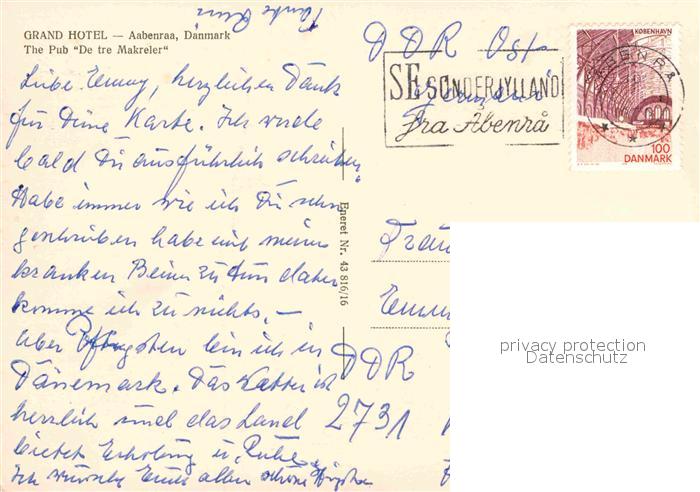 GRAND HOTEL — Aabenraa, Danmark
The Pub "De tre Makreler"
Liebe Emmy, herzlichen Dank
für Deine Karte. Ich werde
bald Dir ausführlich schreiben,
habe immer wie ich Dir schon
geschrieben habe mit meinen
kranken Beinen zu tun daher
komme ich zu nichts. —
Aber Pfingsten bin ich in
Dänemark. Das Wetter ist
herzlich und das Land
bietet Erholung u. Ruhe.
Ich wünsche Euch allen schöne
Tante
Eneret Nr. 43 816/16
DDR Ost
Germany
SE SØNDERJYLLAND
fra Åbenrå
KØBENHAVN
ÅBENRÅ
100
DANMARK
Frau
DDR
2731
privacy protection
Datenschutz